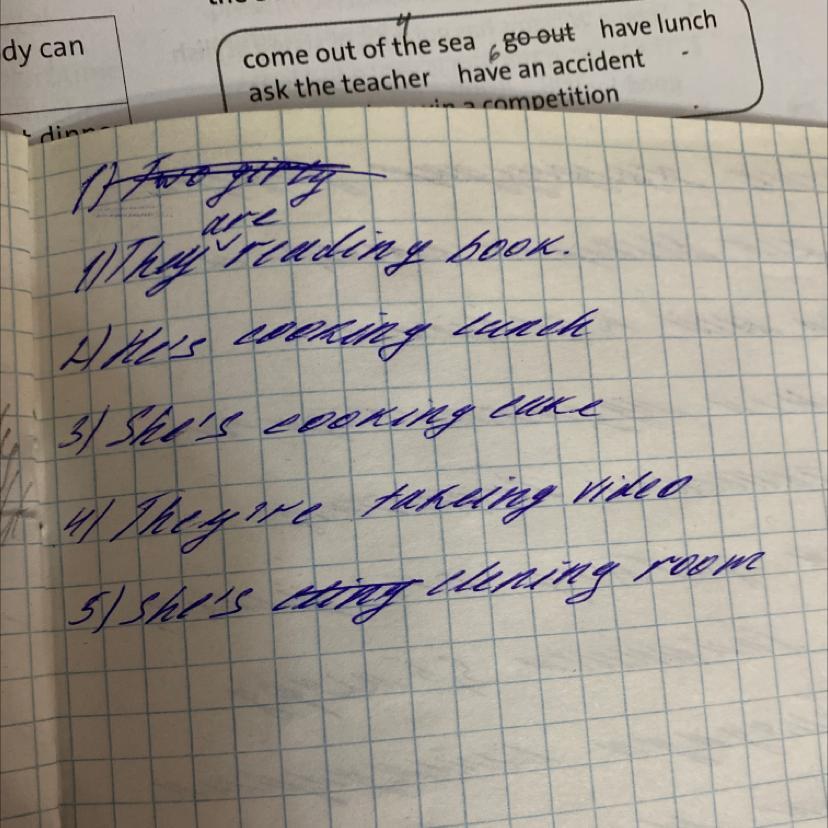 dy can
come out of the sea go out have lunch
4
6
ask the teacher have an accident
competition
1) Two girls
are
1) They reading book.
2) He's cooking lunch
3) She's cooking cake
4) They're takeing video
5) She's clening room